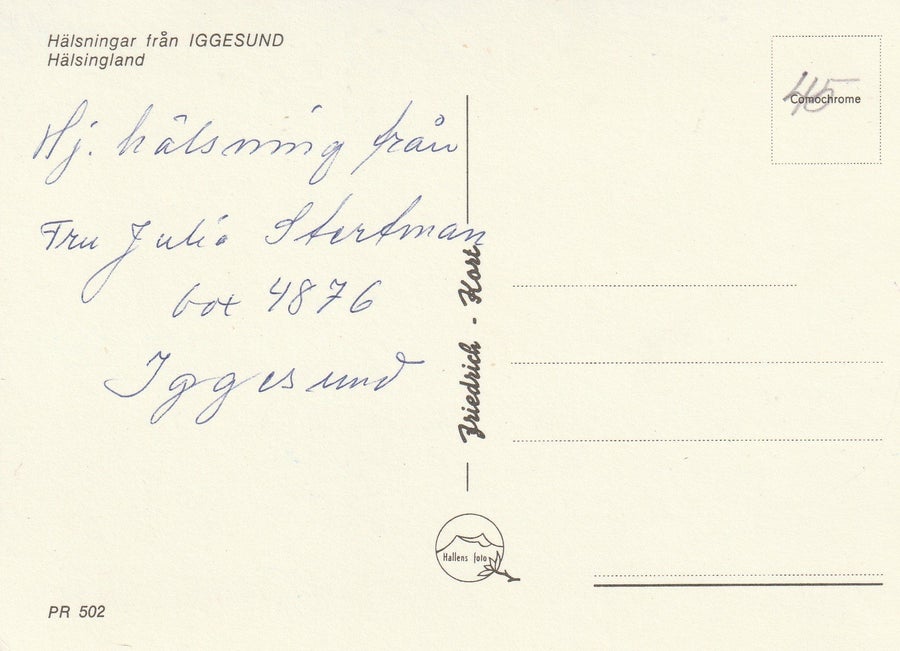 Hälsningar från IGGESUND
Hälsingland
45
Comochrome
Hj. hälsning från
Fru Julia Stortman
box 4876
Iggesund
Friedrich - Kort
Hallens foto
PR 502